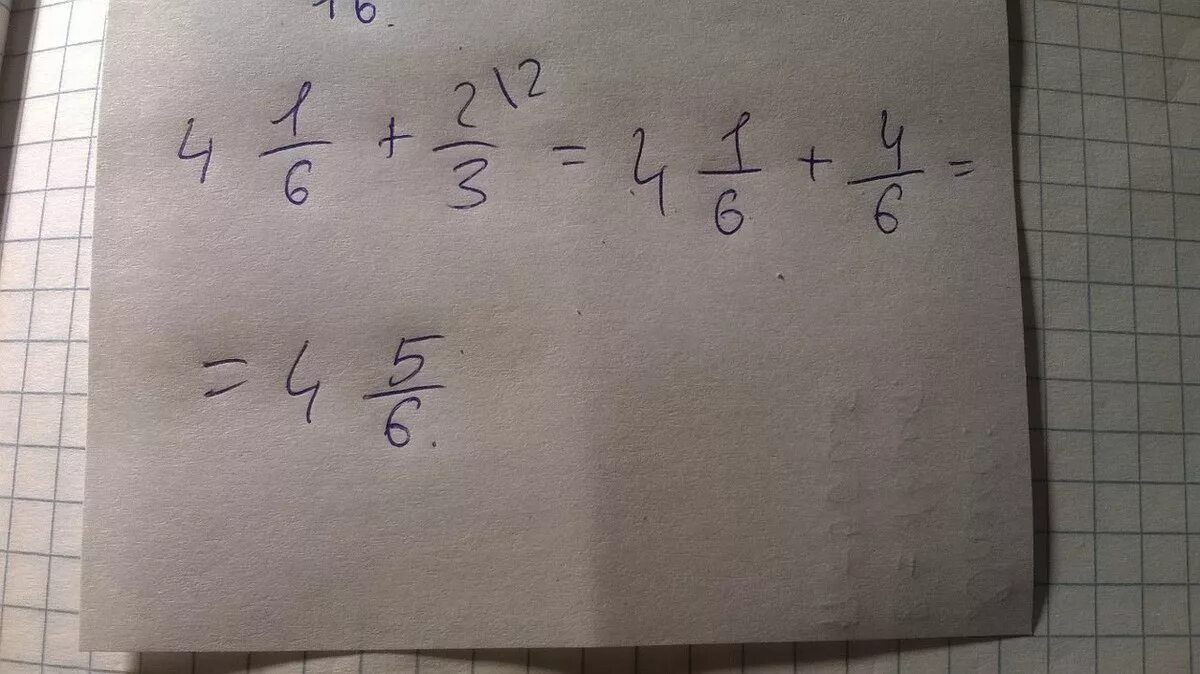 16.
4 1/6 + 2\2/3 = 4 1/6 + 4/6 =
= 4 5/6.